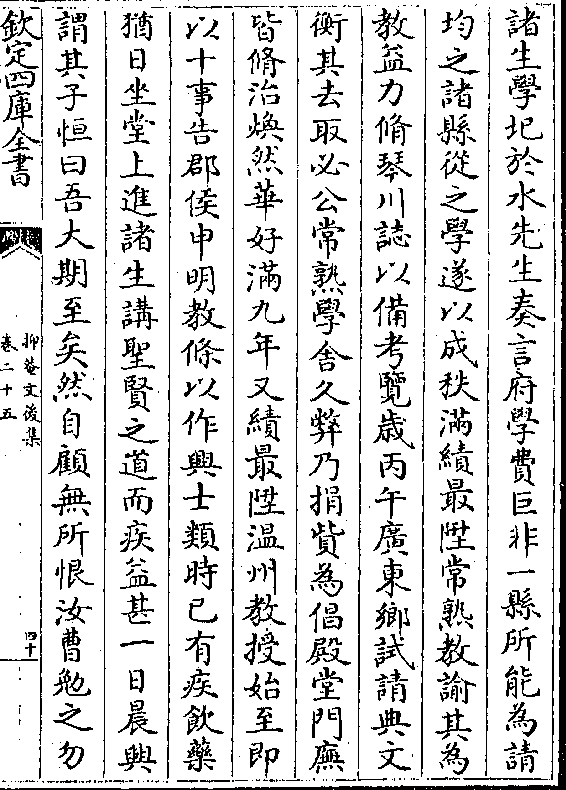 諸生學圯於水先生奏言府學費巨非一縣所能為請
均之諸縣從之學遂以成秩滿績最陞常熟教諭其為
教益力脩琴川誌以備考覽歲丙午廣東鄉試請典文
衡其去取必公常熟學舍久弊乃捐貲為倡殿堂門廡
皆脩治煥然華好滿九年又績最陞温州教授始至即
以十事告郡侯申明教條以作興士類時已有疾飲藥
猶日坐堂上進諸生講聖賢之道而疾益甚一日晨興
謂其子恒曰吾大期至矣然自顧無所恨汝曹勉之勿
欽定四庫全書
抑菴文後集
卷二十五
四十